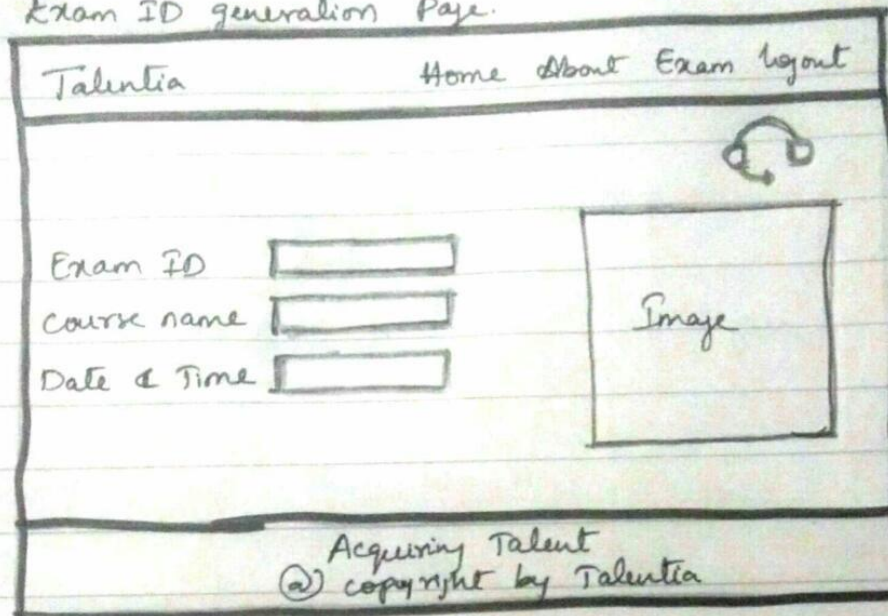 Exam ID generation Page.
Talentia Home About Exam Logout
Exam ID
Course name
Image
Date & Time
Acquiring Talent
@ copyright by Talentia